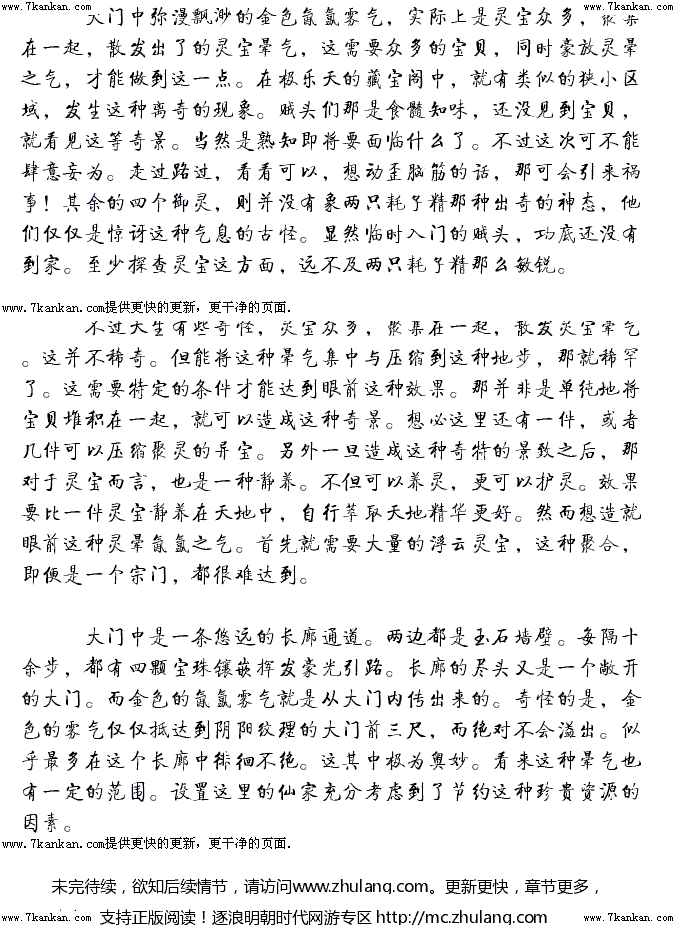 www.7kankan.com www.7kankan.com
大门中弥漫飘渺的金色氤氲雾气，实际上是灵宝众多，聚集
在一起，散发出了的灵宝晕气，这需要众多的宝贝，同时豪放灵晕
之气，才能做到这一点。在极乐天的藏宝阁中，就有类似的狭小区
域，发生这种离奇的现象。贼头们那是食髓知味，还没见到宝贝，
就看见这等奇景。当然是熟知即将要面临什么了。不过这次可不能
肆意妄为。走过路过，看看可以，想动歪脑筋的话，那可会引来祸
事！其余的四个御灵，则并没有象两只耗子精那种出奇的神态，他
们仅仅是惊讶这种气息的古怪。显然临时入门的贼头，功底还没有
到家。至少探查灵宝这方面，远不及两只耗子精那么敏锐。
www.7kankan.com提供更快的更新，更干净的页面.
不过大生有些奇怪，灵宝众多，聚集在一起，散发灵宝晕气
。这并不稀奇。但能将这种晕气集中与压缩到这种地步，那就稀罕
了。这需要特定的条件才能达到眼前这种效果。那并非是单纯地将
宝贝堆积在一起，就可以造成这种奇景。想必这里还有一件，或者
几件可以压缩聚灵的异宝。另外一旦造成这种奇特的景致之后，那
对于灵宝而言，也是一种静养。不但可以养灵，更可以护灵。效果
要比一件灵宝静养在天地中，自行萃取天地精华更好。然而想造就
眼前这种灵晕氤氲之气。首先就需要大量的浮云灵宝，这种聚合，
即便是一个宗门，都很难达到。
大门中是一条悠远的长廊通道。两边都是玉石墙壁。每隔十
余步，都有四颗宝珠镶嵌挥发豪光引路。长廊的尽头又是一个敞开
的大门。而金色的氤氲雾气就是从大门内传出来的。奇怪的是，金
色的雾气仅仅抵达到阴阳纹理的大门前三尺，而绝对不会溢出。似
乎最多在这个长廊中徘徊不绝。这其中极为奥妙。看来这种晕气也
有一定的范围。设置这里的仙家充分考虑到了节约这种珍贵资源的
因素。
www.7kankan.com提供更快的更新，更干净的页面.
未完待续，欲知后续情节，请访问www.zhulang.com。更新更快，章节更多，
www.7kankan.com 支持正版阅读！逐浪明朝时代网游专区 http://mc.zhulang.com www.7kankan.com